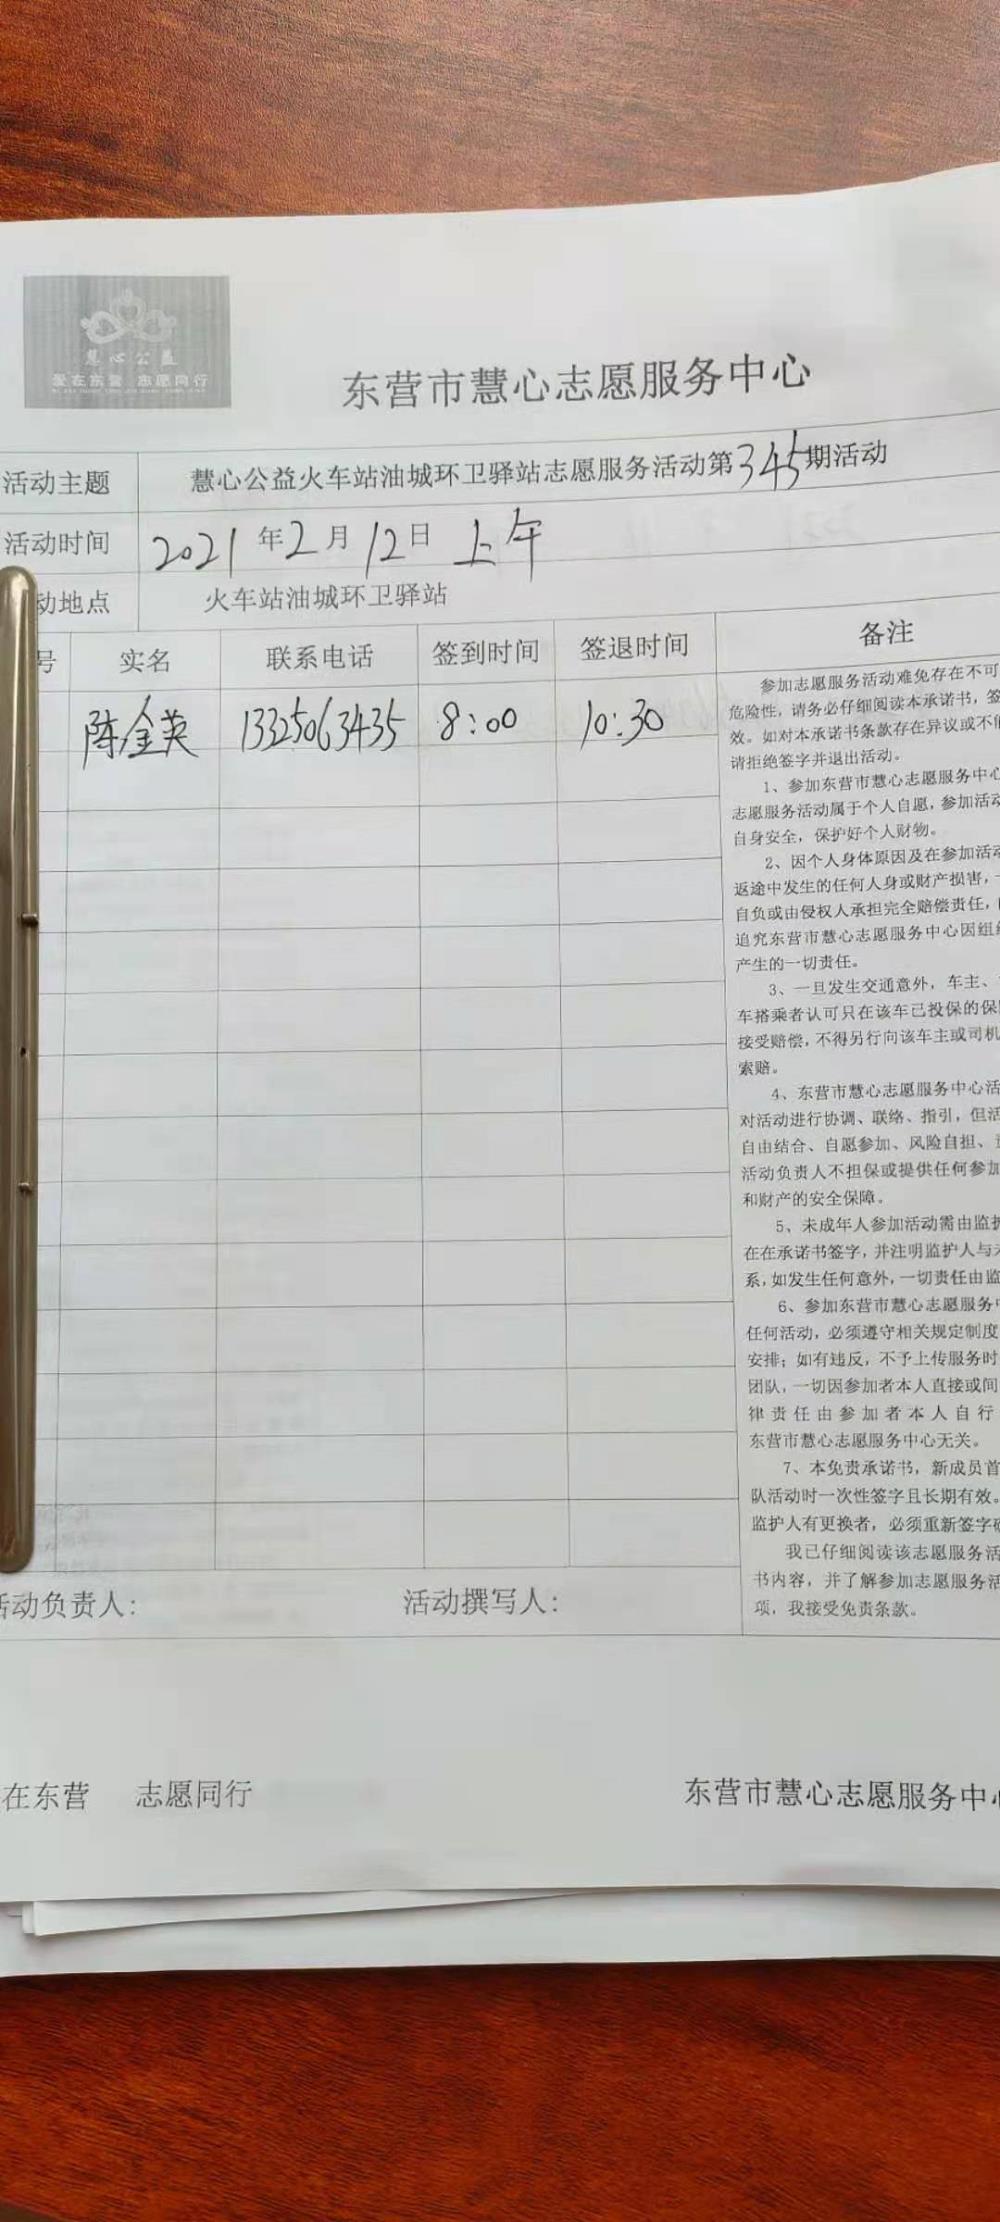 慧心公益
爱在东营 志愿同行
东营市慧心志愿服务中心
活动主题 慧心公益火车站油城环卫驿站志愿服务活动第345期活动
活动时间 2021年2月12日 上午
动地点 火车站油城环卫驿站
号 实名 联系电话 签到时间 签退时间 备注
陈金英 13325063435 8:00 10:30
参加志愿服务活动难免存在不可
危险性，请务必仔细阅读本承诺书，签
效。如对本承诺书条款存在异议或不
请拒绝签字并退出活动。
1、参加东营市慧心志愿服务中心
志愿服务活动属于个人自愿，参加活动
自身安全，保护好个人财物。
2、因个人身体原因及在参加活动
返途中发生的任何人身或财产损害，
自负或由侵权人承担完全赔偿责任，
追究东营市慧心志愿服务中心因组织
产生的一切责任。
3、一旦发生交通意外，车主、
车搭乘者认可只在该车已投保的保
接受赔偿，不得另行向该车主或司机
索赔。
4、东营市慧心志愿服务中心活
对活动进行协调、联络、指引，但活
自由结合、自愿参加、风险自担、
活动负责人不担保或提供任何参加
和财产的安全保障。
5、未成年人参加活动需由监护
在在承诺书签字，并注明监护人与
系，如发生任何意外，一切责任由监
6、参加东营市慧心志愿服务中
任何活动，必须遵守相关规定制度
安排；如有违反，不予上传服务时
团队，一切因参加者本人直接或间
律责任由参加者本人自行
东营市慧心志愿服务中心无关。
7、本免责承诺书，新成员首
队活动时一次性签字且长期有效。
监护人有更换者，必须重新签字
我已仔细阅读该志愿服务活
书内容，并了解参加志愿服务活
项，我接受免责条款。
活动负责人： 活动撰写人：
在东营 志愿同行 东营市慧心志愿服务中心